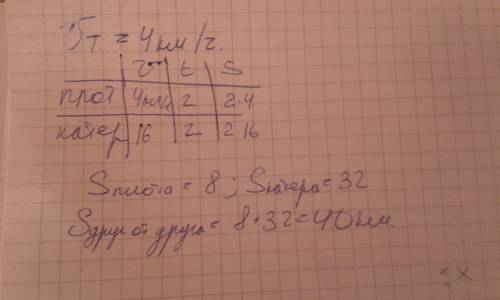 Vт = 4км/ч.
v t S
прот 4км/ч 2 2·4
катер 16 2 2 16
Sплота = 8 ; Sкатера = 32
Sдруг от друга = 8+32=40км.